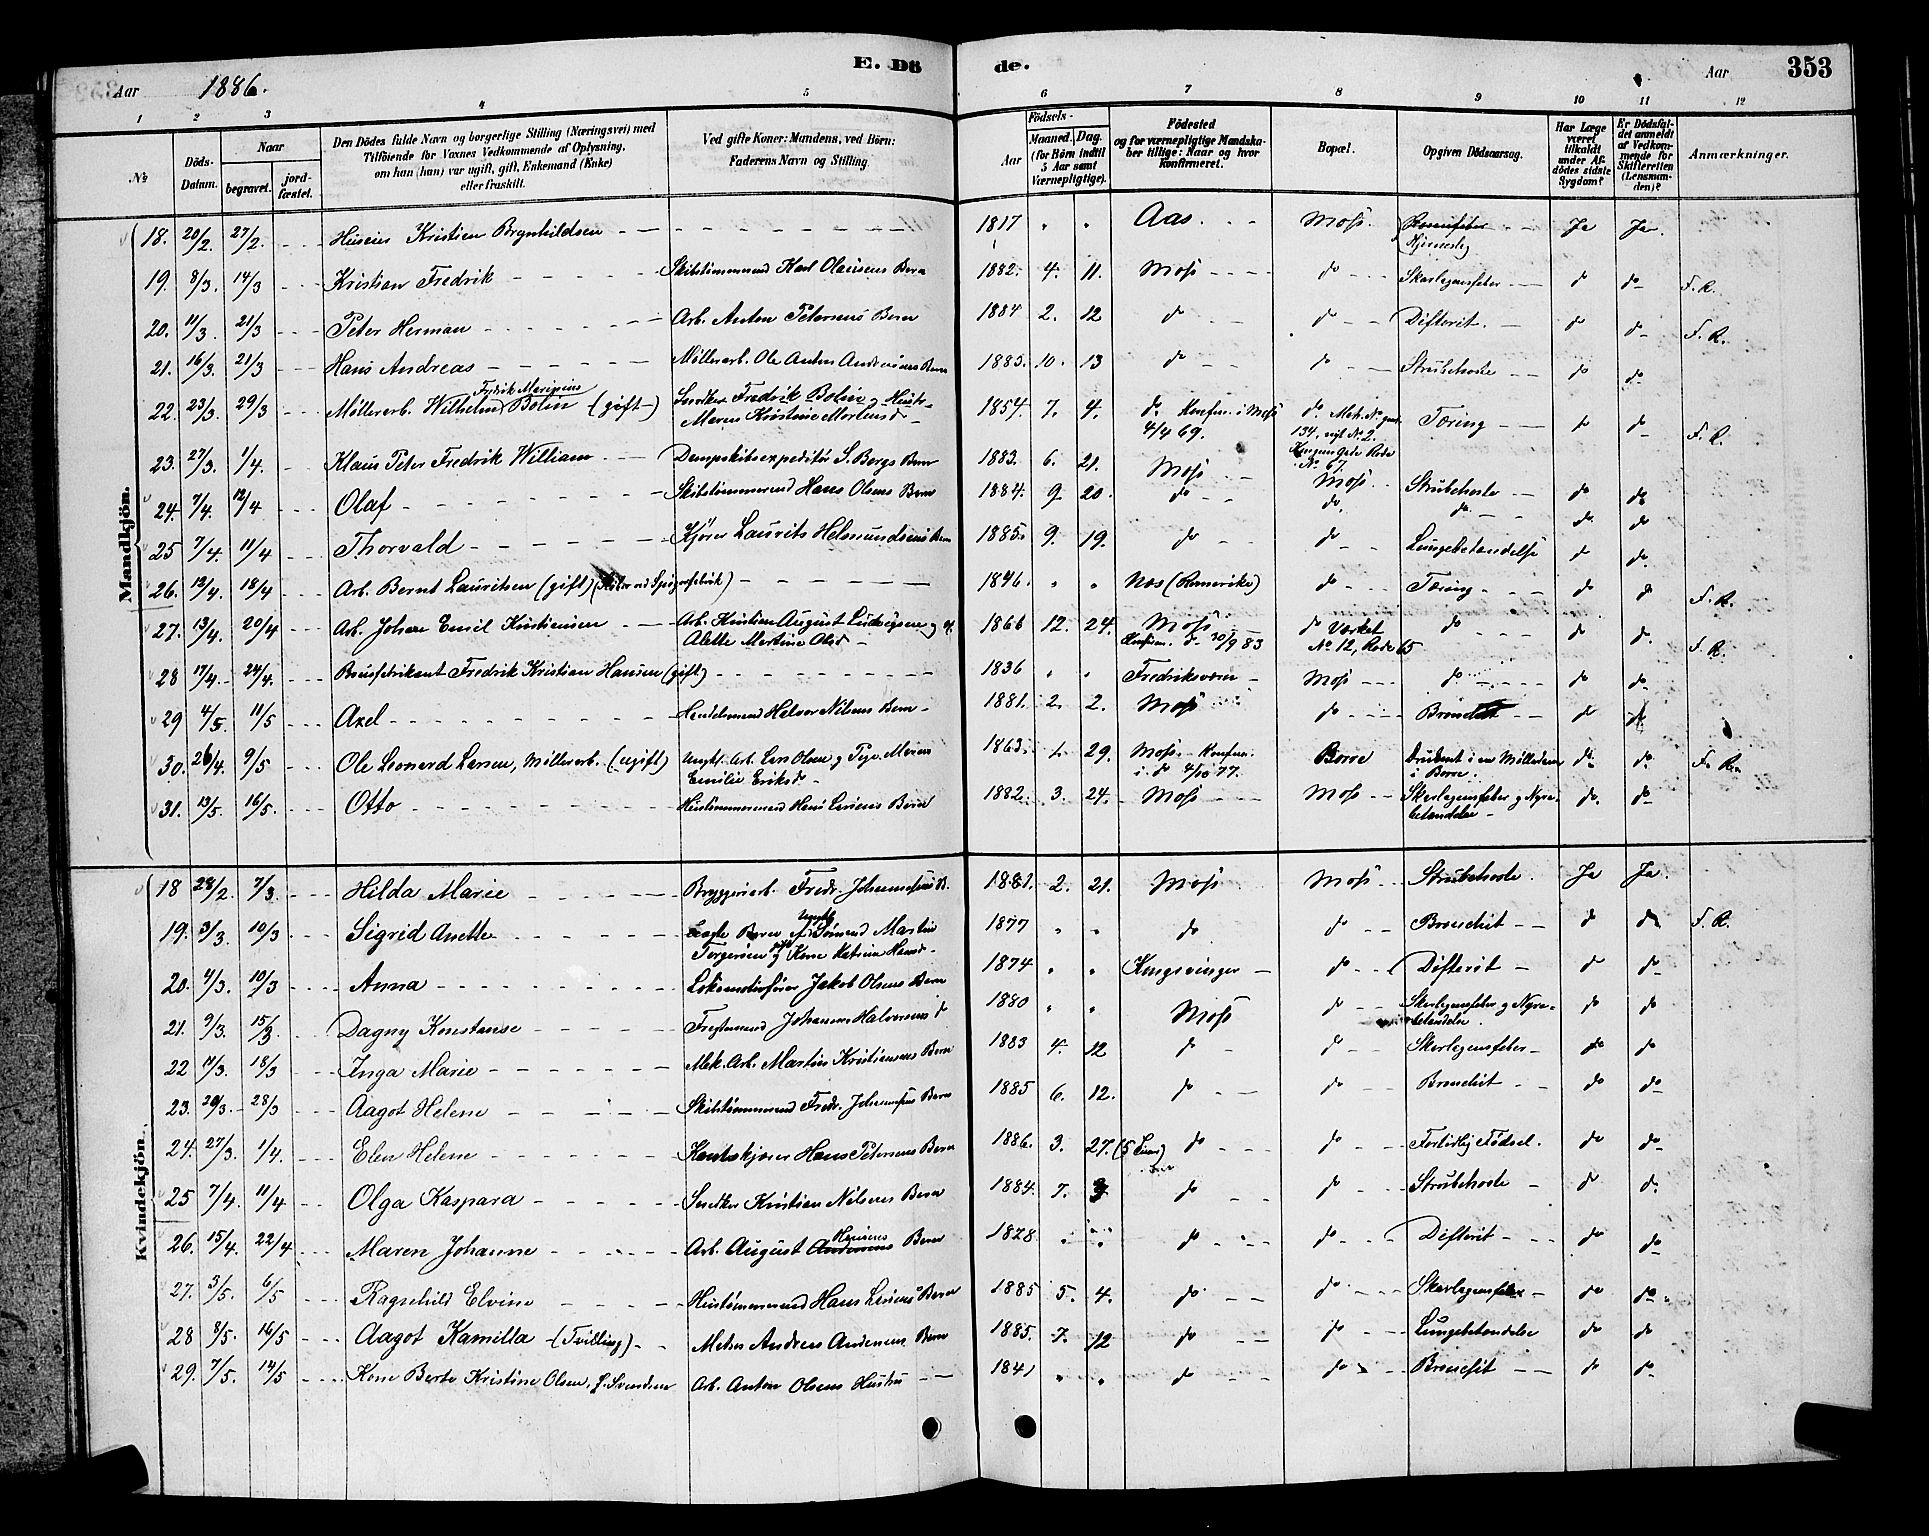 Aar 1886. E. Dö de. Aar 353
1 2 3 4 5 6 7 8 9 10 11 12
№
Döds-Datum.
Naar
begravet.
jord-fæstet.
Den Dödes fulde Navn og borgerlige Stilling (Næringsvei) med
Tilföiende for Voxnes Vedkommende af Oplysning,
om han (hun) var ugift, gift, Enkemand (Enke)
eller fraskilt.
Ved gifte Koner: Mandens, ved Börn:
Faderens Navn og Stilling.
Födsels-
Aar
Maaned. Dag.
(for Börn indtil
5 Aar samt
Værnepligtige).
Födested
og for værnepligtige Mandska-
ber tillige: Naar og hvor
konfirmeret.
Bopæl.
Opgiven Dödsaarsag.
Har Læge
været
tilkaldt
under Af-
dödes sidste
Sygdom?
Er Dödsfal-
det anmeldt
af Vedkom-
mende for
Skifteretten
(Lensman-
den)?
Anmærkninger.
Mandkjön.
18. 20/2. 27/2. Kristian Brynhildsen 1817 " " Aas. Moss. Hjerneslag Ja Ja.
19. 8/3. 14/3 Kristian Fredrik Skibstømmermand Karl Olausens Barn 1882. 4. 11. Moss do Skarlagensfeber do do F. R.
20. 11/3. 21/3 Peter Herman Arb. Anton Petersens Barn 1884 2. 12 do do Difterit. do do F. R.
21. 16/3. 21/3 Hans Andreas Møllerarb. Ole Anton Andersens Barn 1885. 10. 13 do do Strubehoste do do
22. 23/3. 29/3 Møllerarb. Wilhelm Fredrik Marinius Bolin (gift) Snedker Fredrik Bolin og Hustr.
Maren Kristine Mortensd. 1854. 7. 4. do. Konfirm. i Moss
4/4 69. do. Mat. No.
134, nyt No 2. Tæring do do F. R.
Kongens Gade Rode
No 67.
23. 27/3. 1/4. Klaus Peter Fredrik William Dampskibsexpeditør S. Bergs Barn 1883. 6. 21. Moss Moss Strubehoste do do
24. 7/4. 12/4 Olaf Skibstømmermand Hans Olsens Barn 1884. 9. 20. do do. do. do. do
25 7/4. 11/4 Thorvald Kjører Laurits Helmundsens Barn 1885. 9. 19. do do Lungebetændelse do do
26. 12/4. 18/4 Arb. Bernt Lauritsen (gift) 1846. " " Næs (Romerike) do Tæring do do F. R.
27. 13/4. 20/4 Arb. Johan Emil Kristiansen Arb. Kristian August Ludvigsen og H.
Alette Martine Olsd. 1866 12. 24. Moss
Konfirm. do 30/9 83 do Værket
No 12, Rode 65 do do do. F. R.
28 17/4. 24/4. Brusfabrikant Fredrik Kristian Hansen (gift) 1836 " " Fredriksværn Moss do do do
29 4/5. 11/5 Axel Handelsmand Halvor Nilsens Barn 1881. 2. 2. Moss do Bronchit do do
30. 26/4. 9/5 Ole Leonard Larsen, Møllerarb. (ugift) Ungk. Arb. Lars Olsen og Pige Maren
Emilie Eriksd. 1863. 1. 29. Moss. Konfirm.
i do 4/10 77. Borre Druknet i en Mølledam
i Borre. do. do. F. R.
31. 13/5. 16/5. Otto Hustømmermand Hans Larsens Barn 1882. 3. 24. Moss Moss Skarlagensfeber og Nyre-
betændelse do. do
Kvindekjön.
18 28/2 7/3. Hilda Marie Bryggeriarb. Fredr. Johannesens B. 1881. 2. 21. Moss Moss Strubehoste. Ja Ja.
19. 3/3. 10/3. Sigrid Anette Barn af Sømand Martin
Torgersen og Kone Katrine Hansd. 1877 " " do do Bronchit do do F. R.
20. 4/3. 10/3 Anna Lokomotivfører Jakob Olsens Barn 1874 " " Kongsvinger do Difterit do do
21. 9/3. 15/3 Dagny Konstanse Fragtmand Johannes Halvorsens d 1880 " " Moss do Skarlagensfeber og Nyre-
betændelse. do do
22 11/3. 18/3 Inga Marie Mek. Arb. Martin Kristiansens Barn 1883 4. 12 do do Skarlagensfeber do do
23. 20/3. 28/3 Aagot Helene Skibstømmermand Fredr. Johannesens Barn 1885 6. 12. do do Bronchit do do
24. 27/3. 1/4. Elen Helene Hans Petersens Barn 1886. 3. 27. (5 Timer) do do Fortidlig Fødsel. do do
25 7/4. 11/4 Olga Kaspara Snedker Kristian Nilsens Barn 1884. 7. do do Strubehoste do do.
26. 15/4. 22/4 Maren Johanne Arb. August Hansens Barn 1828 do do Difterit do do
27. 3/5. 6/5 Ragnhild Elvine Hustømmermand Hans Larsens Barn 1885 5. 4. do do Skarlagensfeber do do
28 8/5. 16/5 Aagot Kamilla (Tvilling) Andreas Andersens Barn 1885. 7. 12 do do Lungebetændelse do do
29. 7/5. 14/5 Kone Berte Kristine Olsen, f. Svendsen Arb. Anton Olsens Hustru 1841 " " do do Bronchit do do